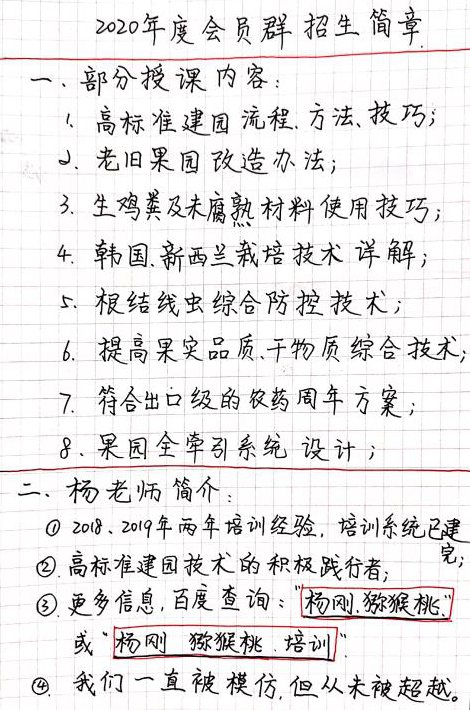 2020年度会员群招生简章
一、部分授课内容:
1. 高标准建园流程、方法、技巧;
2. 老旧果园改造办法;
3. 生鸡粪及未腐熟材料使用技巧;
4. 韩国、新西兰栽培技术详解;
5. 根结线虫综合防控技术;
6. 提高果实品质、干物质综合技术;
7. 符合出口级的农药周年方案;
8. 果园全牵引系统设计;
二、杨老师简介:
① 2018、2019年两年培训经验,培训系统已建
完;
② 高标准建园技术的积极践行者;
③ 更多信息,百度查询:"杨刚.猕猴桃."
或"杨刚 猕猴桃.培训"
④ 我们一直被模仿,但从未被超越。